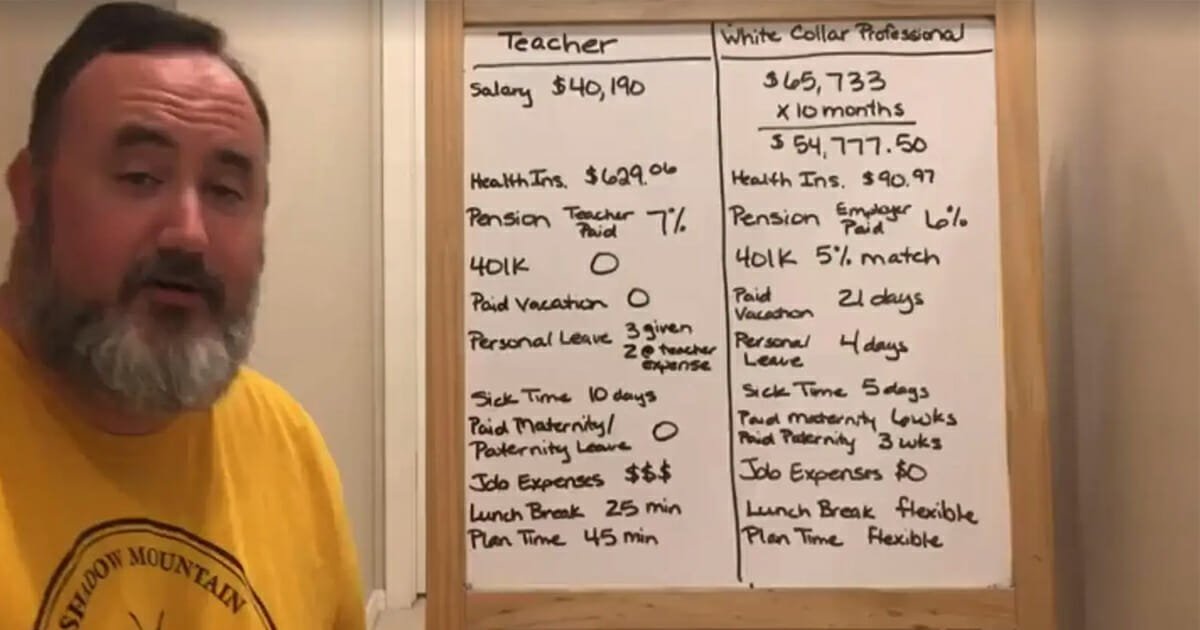 Teacher
Salary $40,190
Health Ins. $629.06
Pension Teacher Paid 7%
401K 0
Paid Vacation 0
Personal Leave 3 given
2 @ teacher
expense
Sick Time 10 days
Paid Maternity/
Paternity Leave 0
Job Expenses $$$
Lunch Break 25 min
Plan Time 45 min
White Collar Professional
$65,733
x 10 months
$54,777.50
Health Ins. $90.97
Pension Employer Paid 6%
401K 5% match
Paid
Vacation 21 days
Personal
Leave 4 days
Sick Time 5 days
Paid Maternity 6wks
Paid Paternity 3 wks
Job Expenses $0
Lunch Break flexible
Plan Time Flexible
SHADOW MOUNTAIN